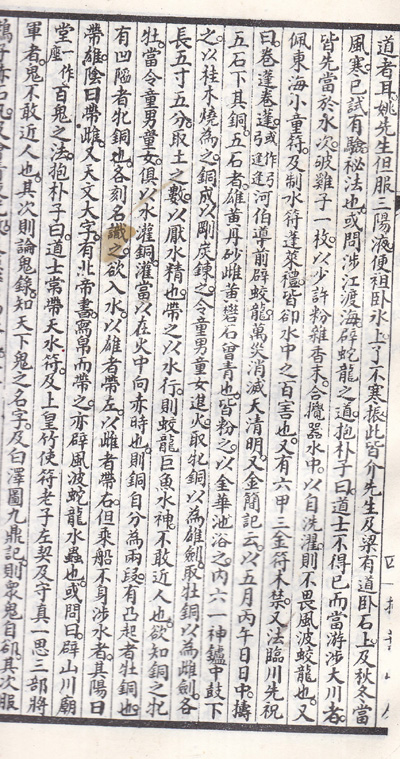 道者耳姚先生但服三陽液便袒卧氷上了不寒振此皆介先生及梁有道卧石上及秋冬當
風寒已試有驗祕法也或問涉江渡海辟蛇龍之道抱朴子曰道士不得已而當游涉大川者
皆先當於水次破雞子一枚以少許粉雜香末合攪器水中以自洗濯則不畏風波蛟龍也又
佩東海小童符及制水符蓬萊禮皆卻水中之百害也又有六甲三金符木禁又法臨川先祝
曰卷蓬卷蓬或作弓逢弓逢河伯導前辟蛟龍萬災消滅天清明又金簡記云以五月丙午日日中擣
五石下其銅五石者雄黃丹砂雌黃礬石曾青也皆粉之以金華池浴之内六一神鑪中鼓下
之以桂木燒為之銅成以剛炭鍊之令童男童女進火取牝銅以為雄劍取牡銅以為雌劍各
長五寸五分取土之數以厭水精也帶之以水行則蛟龍巨魚水神不敢近人也欲知銅之牝
牡當令童男童女俱以水灌銅灌當以在火中向赤時也則銅自分為兩段有凸起者牡銅也
有凹陷者牝銅也各刻名識之欲入水以雄者帶左以雌者帶右但乘船不身涉水者其陽日
帶雄陰日帶雌又天文大字有北帝書寫帛而帶之亦辟風波蛟龍水蟲也或問曰辟山川廟
堂一作座百鬼之法抱朴子曰道士常帶天水符及上皇竹使符老子左契及守真一思三部將
軍者鬼不敢近人也其次則論鬼錄知天下鬼之名字及白澤圖九鼎記則衆鬼自卻其次服